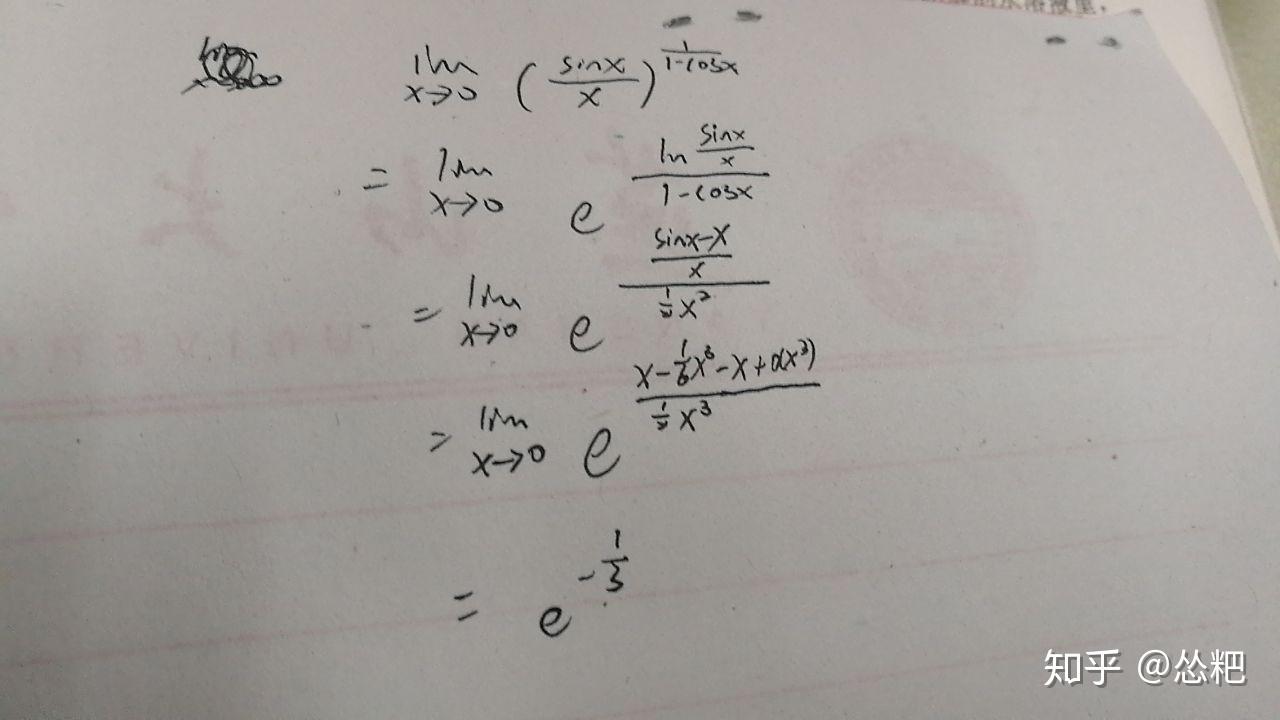 lim x→0 (sinx/x)^(1/(1-cosx))
= lim x→0 e^((ln (sinx/x))/(1-cosx))
= lim x→0 e^(((sinx-x)/x)/(1/2 x²))
= lim x→0 e^((x-1/6x³-x+o(x³))/(1/2 x³))
= e^(-1/3)
知乎 @怂粑